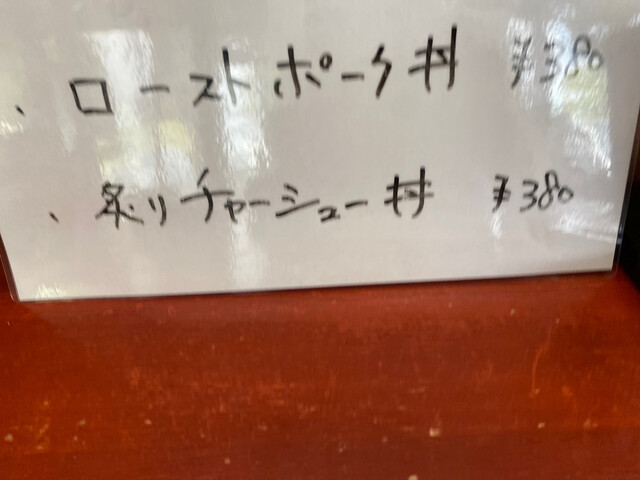 、ローストポーク丼 ¥380
、炙りチャーシュー丼 ¥380